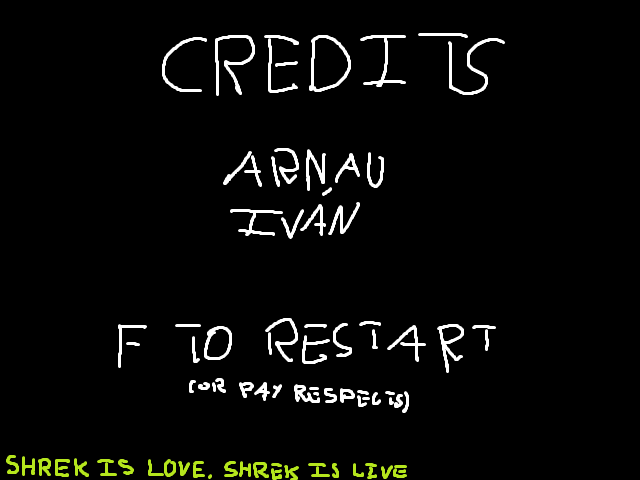 CREDITS
ARNAU
IVÁN
F TO RESTART
(OR PAY RESPECTS)
SHREK IS LOVE, SHREK IS LIVE